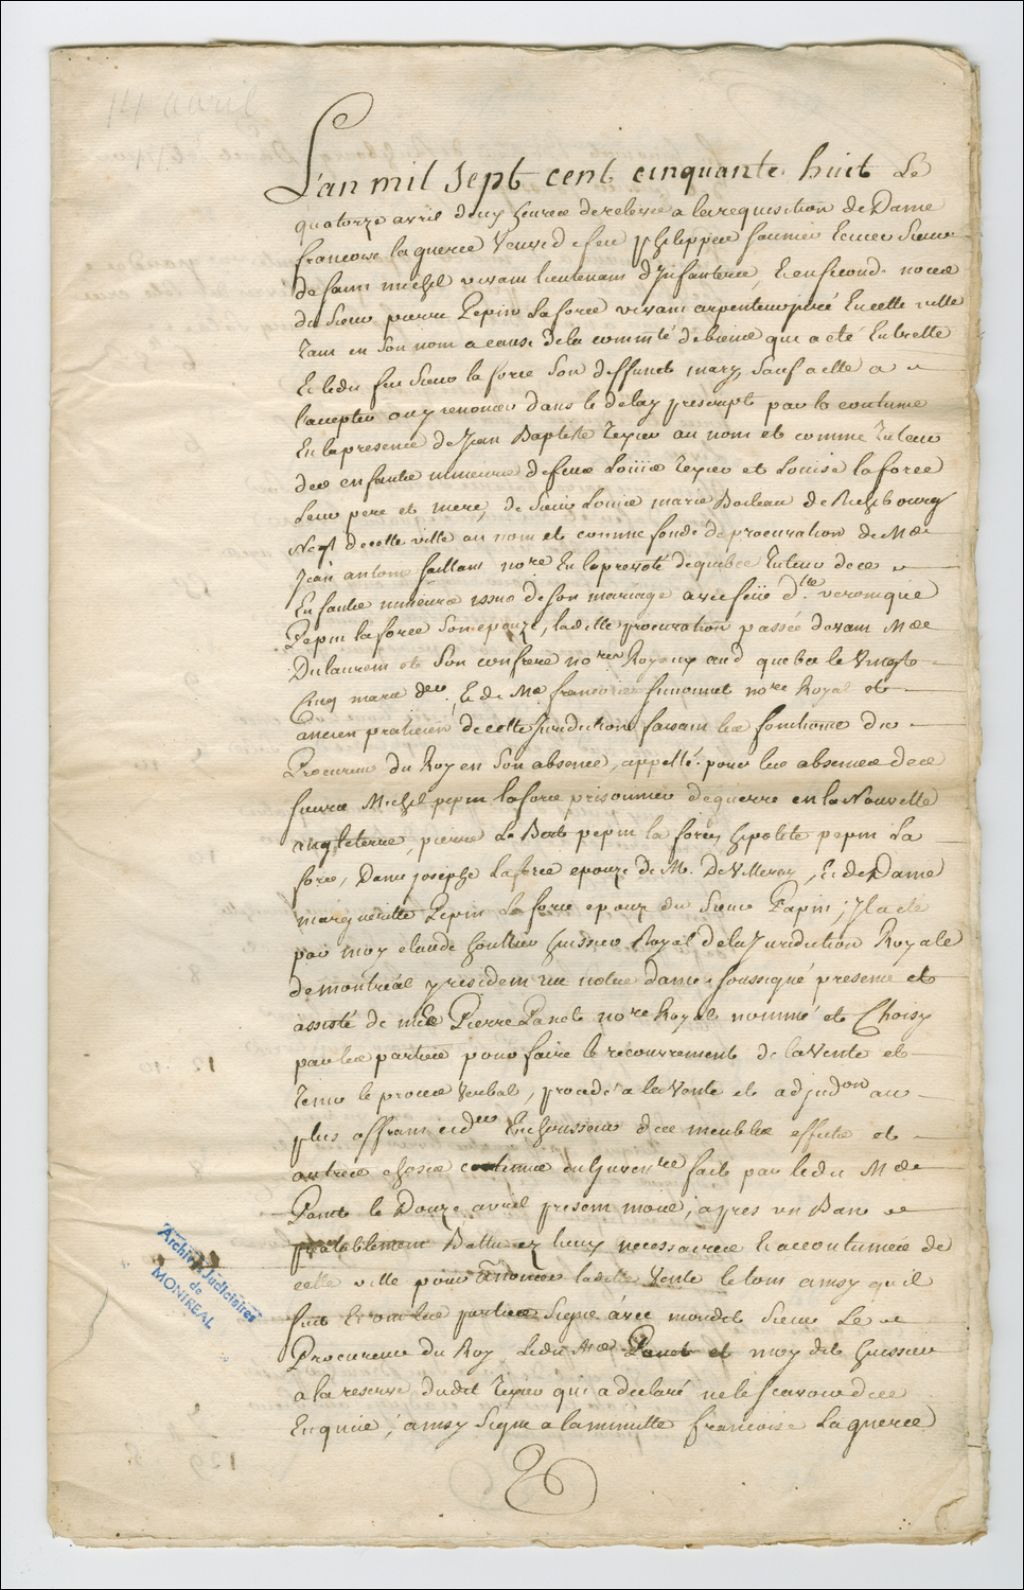 14 avril
L'an mil sept cent cinquante huit Le
quatorze avril deux heures de relevée a la requisition de Dame
francoise laguerce Veuve de feu philippe
de saint michel vivant lieutenant d'Infanterie, et en second noces
du Sieur pierre Pepin Laforce vivant arpenteur juré en cette ville
Tant en son nom a cause de la commté de biens qui a été Entrelle
Et ledit feu Sieur la force son deffunct mary, sauf a elle a
l'accepter ou y renoncer dans le delay prescript par la coutume
En la presence de Jean Baptiste Texier au nom et comme Tuteur
des enfants mineurs de feux Louis Texier et Louise laforce
Leur pere et mere, de Sieur Louis marie Boileau de Richebourg
Negt de cette ville au nom et comme fondé de procuration de Me
Jean antoine saillant nore En la prevoté de quebec Tuteur des
Enfants mineurs issus de son mariage avec feüe dlle veronique
Pepin laforce son epouze, ladite procuration passée devant Me
Dulaurent et son confrere nores Royaux aud quebec le Vingt
Cinq mars der, Et de Me francois simonnet nore Royal et
ancien praticien de cette Juridiction faisant les fonctions du
Procureur du Roy en son absence, appellé pour les absences des
sieurs Michel pepin laforce prisonnier de guerre en la Nouvelle
angleterre, pierre Le Bert pepin la force, hipolite pepin La
force, Dame josephe Laforce epouze de Mr. De Villeray, Et de Dame
margueritte Pepin Laforce epouze du Sieur Papin; Il a eté
par moy claude huissier Royal de la Juridiction Royale
de montréal y resident rue notre dame soussigné presence et
assisté de mee Pierre Panet nore Royal nommé et Choisy
par les parties pour faire le recouvrement de la Vente et
Tenir le proces Verbal, procedé a la Vente et adjudon au
plus offrant et der Encherisseur des meubles effets et
autres choses contenues en l'inventre fait par ledit Me
Panet le Douze avril present mois; apres un Ban
prealablement Battu ez lieux necessaires et accoutumés de
cette ville pour anoncer ladite Vente le tout ainsy qu'il
suit Et ont les parties signé avec mondit Sieur Le
Procureur du Roy Ledit Me Panet et moy dit huissier
a la reserve dudit Texier qui a declaré ne le scavoir de ce
Enquis; ainsy signé a la minutte francoise Laguerce
Archives Judiciaires
de
MONTREAL